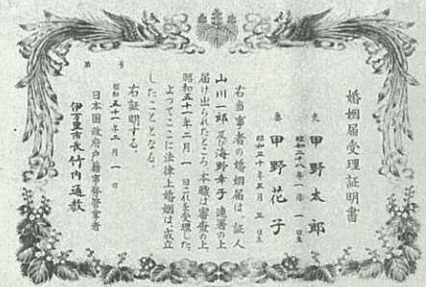 婚姻届受理証明書
夫 甲野太郎
昭和二八年一月一日生
妻 甲野花子
昭和三十年五月五日生
右当事者の婚姻届は、証人
山川一郎及び海野幸子連署の上
届け出られたところ、本職は審査の上、
昭和五十一年二月一日これを受理した。
よって、ここに法律上婚姻は、成立
したこととなる。
右証明する。
昭和五十一年二月一日
日本国政府戸籍事務管掌者
伊万里市長竹内通教
第 号